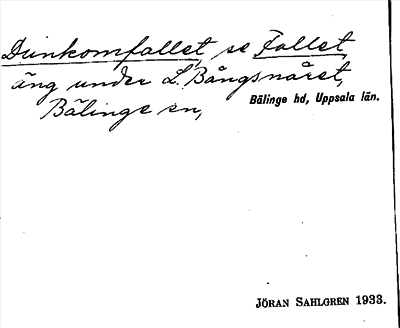 Dunkomfallet, se Fallet,
äng under L. Bångsnäret,
Bälinge sn,
Bälinge hd, Uppsala län.
JÖRAN SAHLGREN 1933.